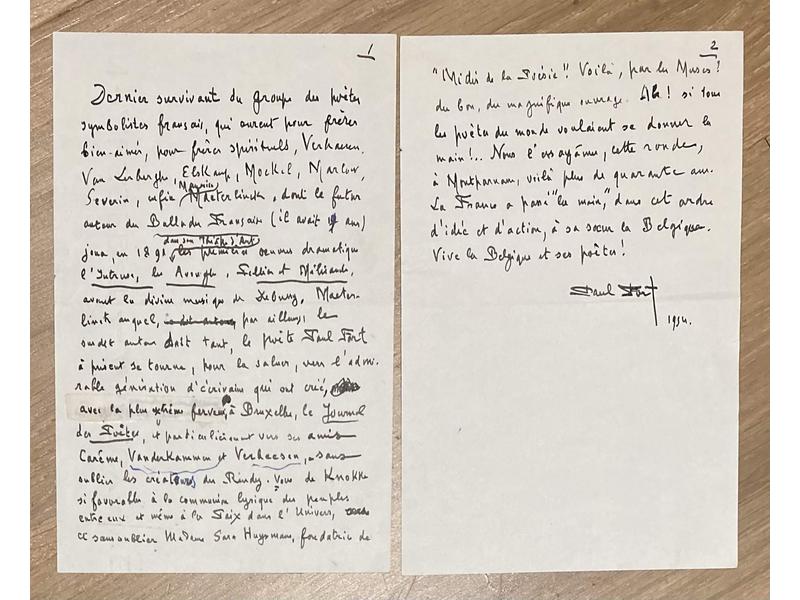 1
Dernier survivant du groupe des poètes
symbolistes français, qui eurent pour frères
bien-aimés, pour frères spirituels, Verhaeren,
Van Lerberghe, Elskamp, Mockel, Marlow,
Maurice
Severin, enfin Maeterlinck, dont le futur
auteur des Ballades Françaises (il avait ans)
dans son Théâtre d'Art
joua, en 1891, les premières œuvres dramatiques
l'Intruse, les Aveugles, Pelléas et Mélisande,
avant la divine musique de Debussy, Maeter-
linck auquel, par ailleurs, le
susdit auteur doit tant, le poète Paul Fort
à présent se tourne, pour la saluer, vers l'admi-
rable génération d'écrivains qui ont créé,
avec la plus extrême ferveur, à Bruxelles, le Journal
des Poètes, et particulièrement vers ses amis
Carême, Vanderkammen et Verheesen, sans
oublier les créateurs du Rendez-Vous de Knokke
si favorable à la communion lyrique des peuples
entre eux et même à la Paix dans l'Univers,
ce sans oublier Madame Sara Huysmans, fondatrice de
2
"Midis de la Poésie"! Voilà, par les Muses!
du bon, du magnifique ouvrage. Ah! si tous
les poètes du monde voulaient se donner la
main!.. Nous l'essayâmes, cette ronde,
à Montparnasse, voilà plus de quarante ans.
La France a passé "la main", dans cet ordre
d'idée et d'action, à sa sœur la Belgique.
Vive la Belgique et ses poètes!
Paul Fort
1954.